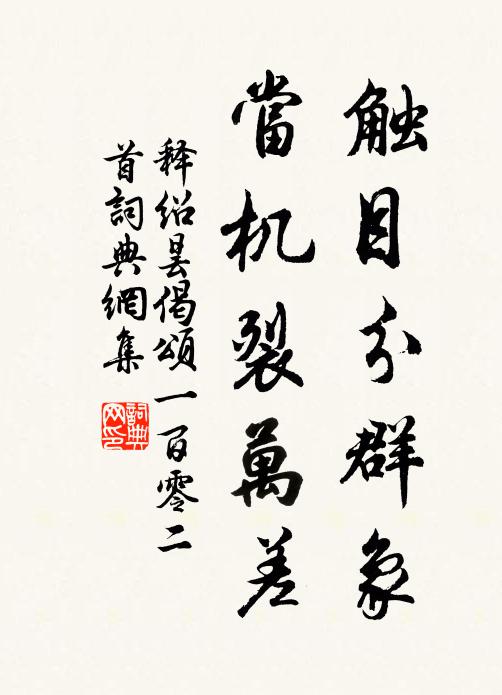 触目分群象
當机裂萬差
释绍昙偈頌一百零二
首詞典網集
詞典网印